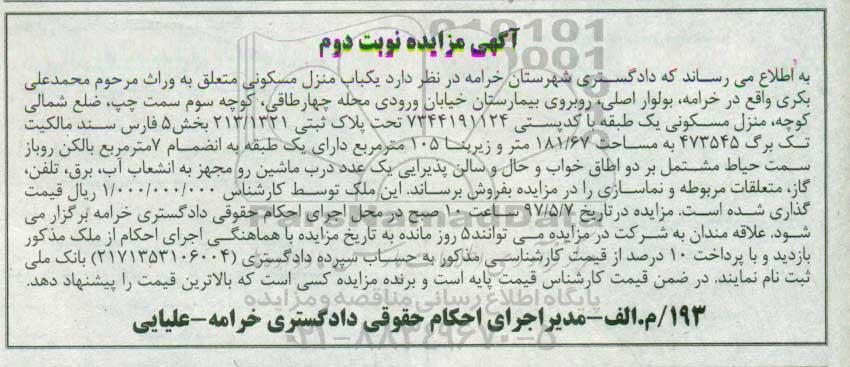 آگهی مزایده نوبت دوم
به اطلاع می رساند که دادگستری شهرستان خرامه در نظر دارد یکباب منزل مسکونی متعلق به وراث مرحوم محمدعلی
بکری واقع در خرامه، بولوار اصلی، روبروی بیمارستان خیابان ورودی محله چهارطاقی، کوچه سوم سمت چپ، ضلع شمالی
کوچه، منزل مسکونی یک طبقه با کدپستی ۷۳۴۴۱۹۱۱۲۴ تحت پلاک ثبتی ۲۱۳/۱۳۲۱ بخش۵ فارس سند مالکیت
تک برگ ۴۷۳۵۴۵ به مساحت ۱۸۱/۶۷ متر و زیربنا ۱۰۵ مترمربع دارای یک طبقه به انضمام ۷مترمربع بالکن روباز
سمت حیاط مشتمل بر دو اطاق خواب و حال و سالن پذیرایی یک عدد درب ماشین رو مجهز به انشعاب آب، برق، تلفن،
گاز، متعلقات مربوطه و نماسازی را در مزایده بفروش برساند. این ملک توسط کارشناس ۱/۰۰۰/۰۰۰/۰۰۰ ریال قیمت
گذاری شده است. مزایده درتاریخ ۹۷/۵/۷ ساعت ۱۰ صبح در محل اجرای احکام حقوقی دادگستری خرامه برگزار می
شود. علاقه مندان به شرکت در مزایده می توانند۵ روز مانده به تاریخ مزایده با هماهنگی اجرای احکام از ملک مذکور
بازدید و با پرداخت ۱۰ درصد از قیمت کارشناسی مذکور به حساب سپرده دادگستری (۲۱۷۱۳۵۳۱۰۶۰۰۴) بانک ملی
ثبت نام نمایند. در ضمن قیمت کارشناس قیمت پایه است و برنده مزایده کسی است که بالاترین قیمت را پیشنهاد دهد.
پایگاه اطلاع رسانی مناقصه و مزایده
۱۹۳/م.الف-مدیراجرای احکام حقوقی دادگستری خرامه-علیایی
۰۲۱-۸۸۳۴۹۶۷۰-۵